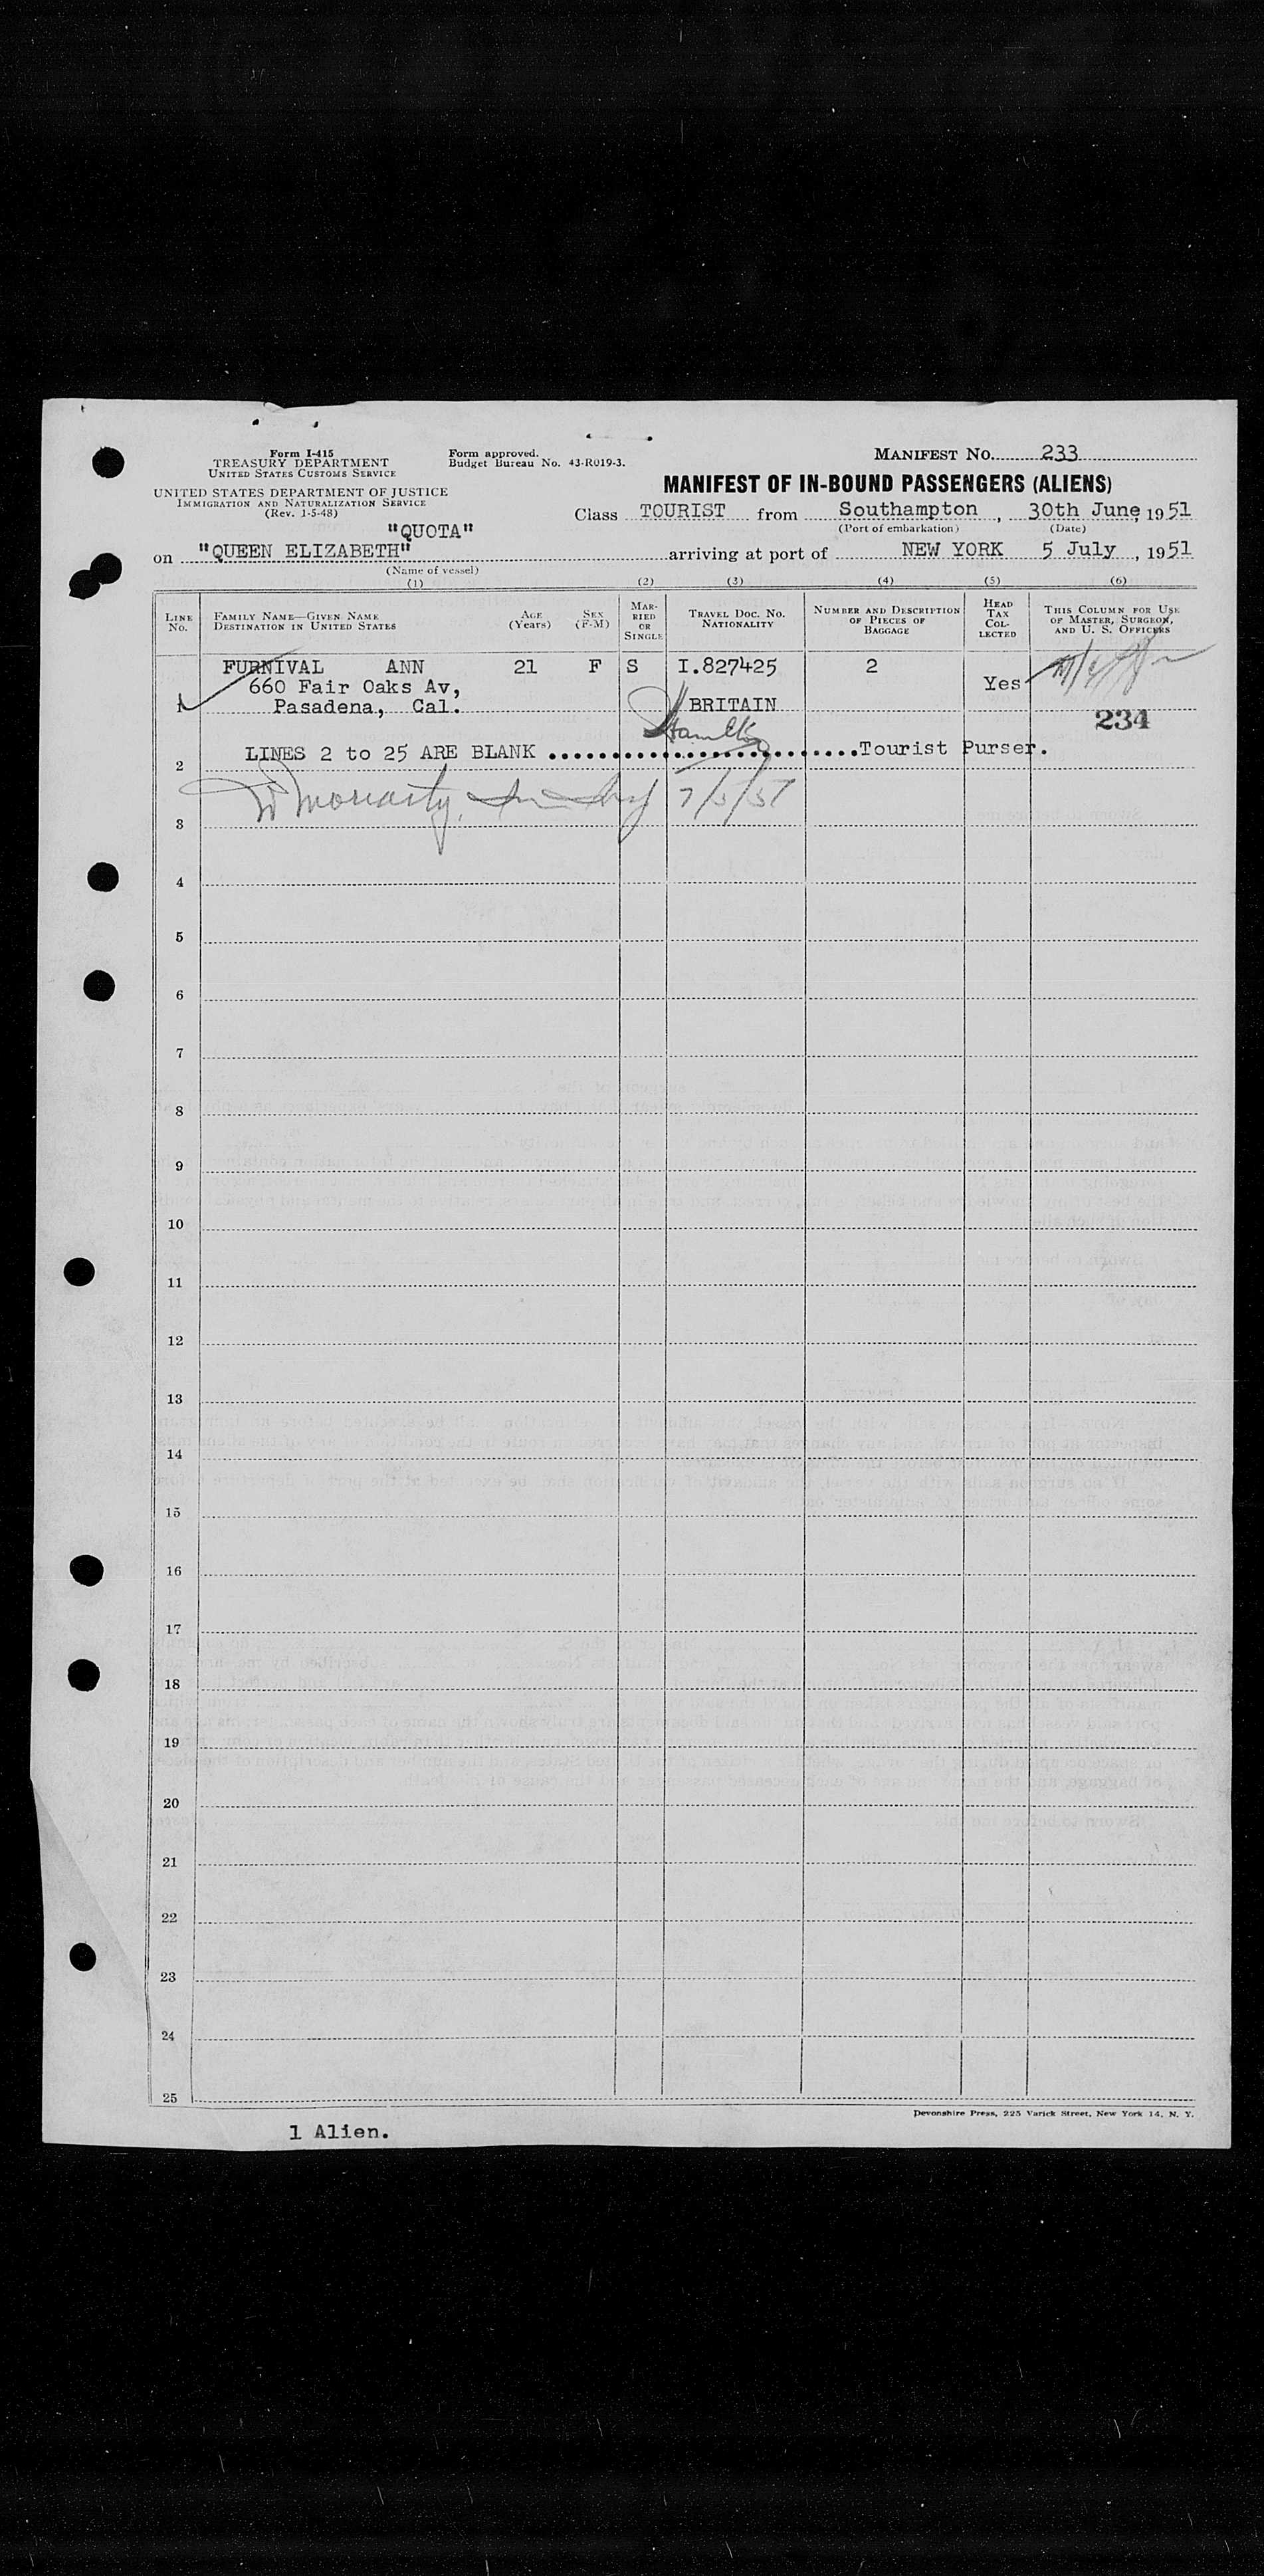 Form I-415
TREASURY DEPARTMENT
UNITED STATES CUSTOMS SERVICE
UNITED STATES DEPARTMENT OF JUSTICE
IMMIGRATION AND NATURALIZATION SERVICE
(Rev. 1-5-48)
Form approved.
Budget Bureau No. 43-R019-3.
MANIFEST No. 233
MANIFEST OF IN-BOUND PASSENGERS (ALIENS)
"QUOTA"
Class TOURIST from Southampton, 30th June, 1951
(Port of embarkation) (Date)
on "QUEEN ELIZABETH" arriving at port of NEW YORK 5 July, 1951
(Name of vessel)
(1) (2) (3) (4) (5) (6)
LINE No.
FAMILY NAME—GIVEN NAME
DESTINATION IN UNITED STATES
AGE (Years)
SEX (F-M)
MARRIED OR SINGLE
TRAVEL DOC. NO.
NATIONALITY
NUMBER AND DESCRIPTION OF PIECES OF BAGGAGE
HEAD TAX COLLECTED
THIS COLUMN FOR USE OF MASTER, SURGEON, AND U. S. OFFICERS
FURNIVAL ANN 21 F S I.827425 2
660 Fair Oaks Av, Yes
1 Pasadena, Cal. BRITAIN
234
Hamilton
LINES 2 to 25 ARE BLANK ........................Tourist Purser.
2
Moriarty, 7/5/51
3
4
5
6
7
8
9
10
11
12
13
14
15
16
17
18
19
20
21
22
23
24
25
Devonshire Press, 225 Varick Street, New York 14, N. Y.
1 Alien.